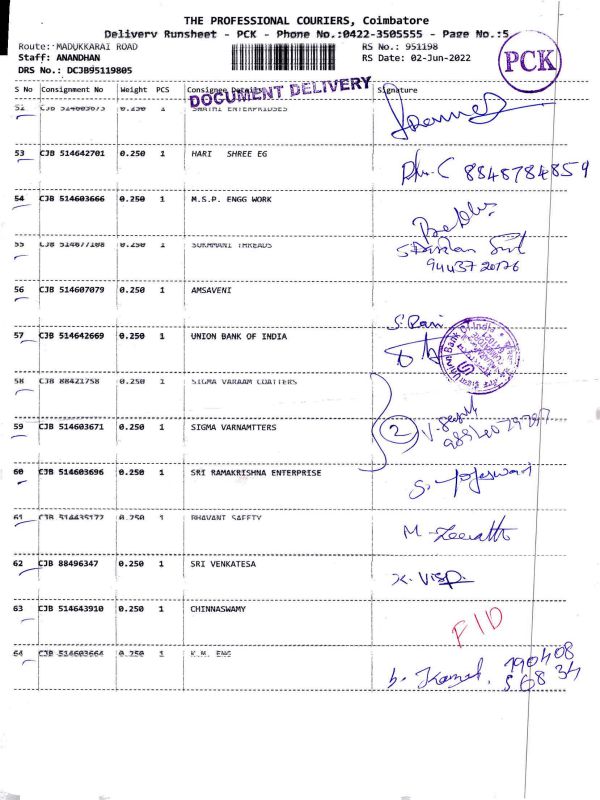 THE PROFESSIONAL COURIERS, Coimbatore
Delivery Runsheet - PCK - Phone No.:0422-3505555 - Page No.:5
Route: MADUKKARAI ROAD
RS No.: 951198
Staff: ANANDHAN
RS Date: 02-Jun-2022
DRS No.: DCJB95119805
PCK
S No Consignment No Weight PCS Consignee Details Signature
DOCUMENT DELIVERY
52 CJB 514603673 0.250 1 SWATHI ENTERPRISES
53 CJB 514642701 0.250 1 HARI SHREE EG
8848784859
54 CJB 514603666 0.250 1 M.S.P. ENGG WORK
55 CJB 514677108 0.250 1 SUKMMANI THREADS
94437 20176
56 CJB 514607079 0.250 1 AMSAVENI
S. Rani
57 CJB 514642669 0.250 1 UNION BANK OF INDIA
Union Bank Of India
58 CJB 88421758 0.250 1 SIGMA VARAAM COATTERS
2
59 CJB 514603671 0.250 1 SIGMA VARNAMTTERS
60 CJB 514603696 0.250 1 SRI RAMAKRISHNA ENTERPRISE
61 CJB 514435177 0.250 1 BHAVANI SAFETY
62 CJB 88496347 0.250 1 SRI VENKATESA
63 CJB 514643910 0.250 1 CHINNASWAMY
F I D
64 CJB 514603664 0.250 1 K.M. ENG
b. Kamal. 790408
56834